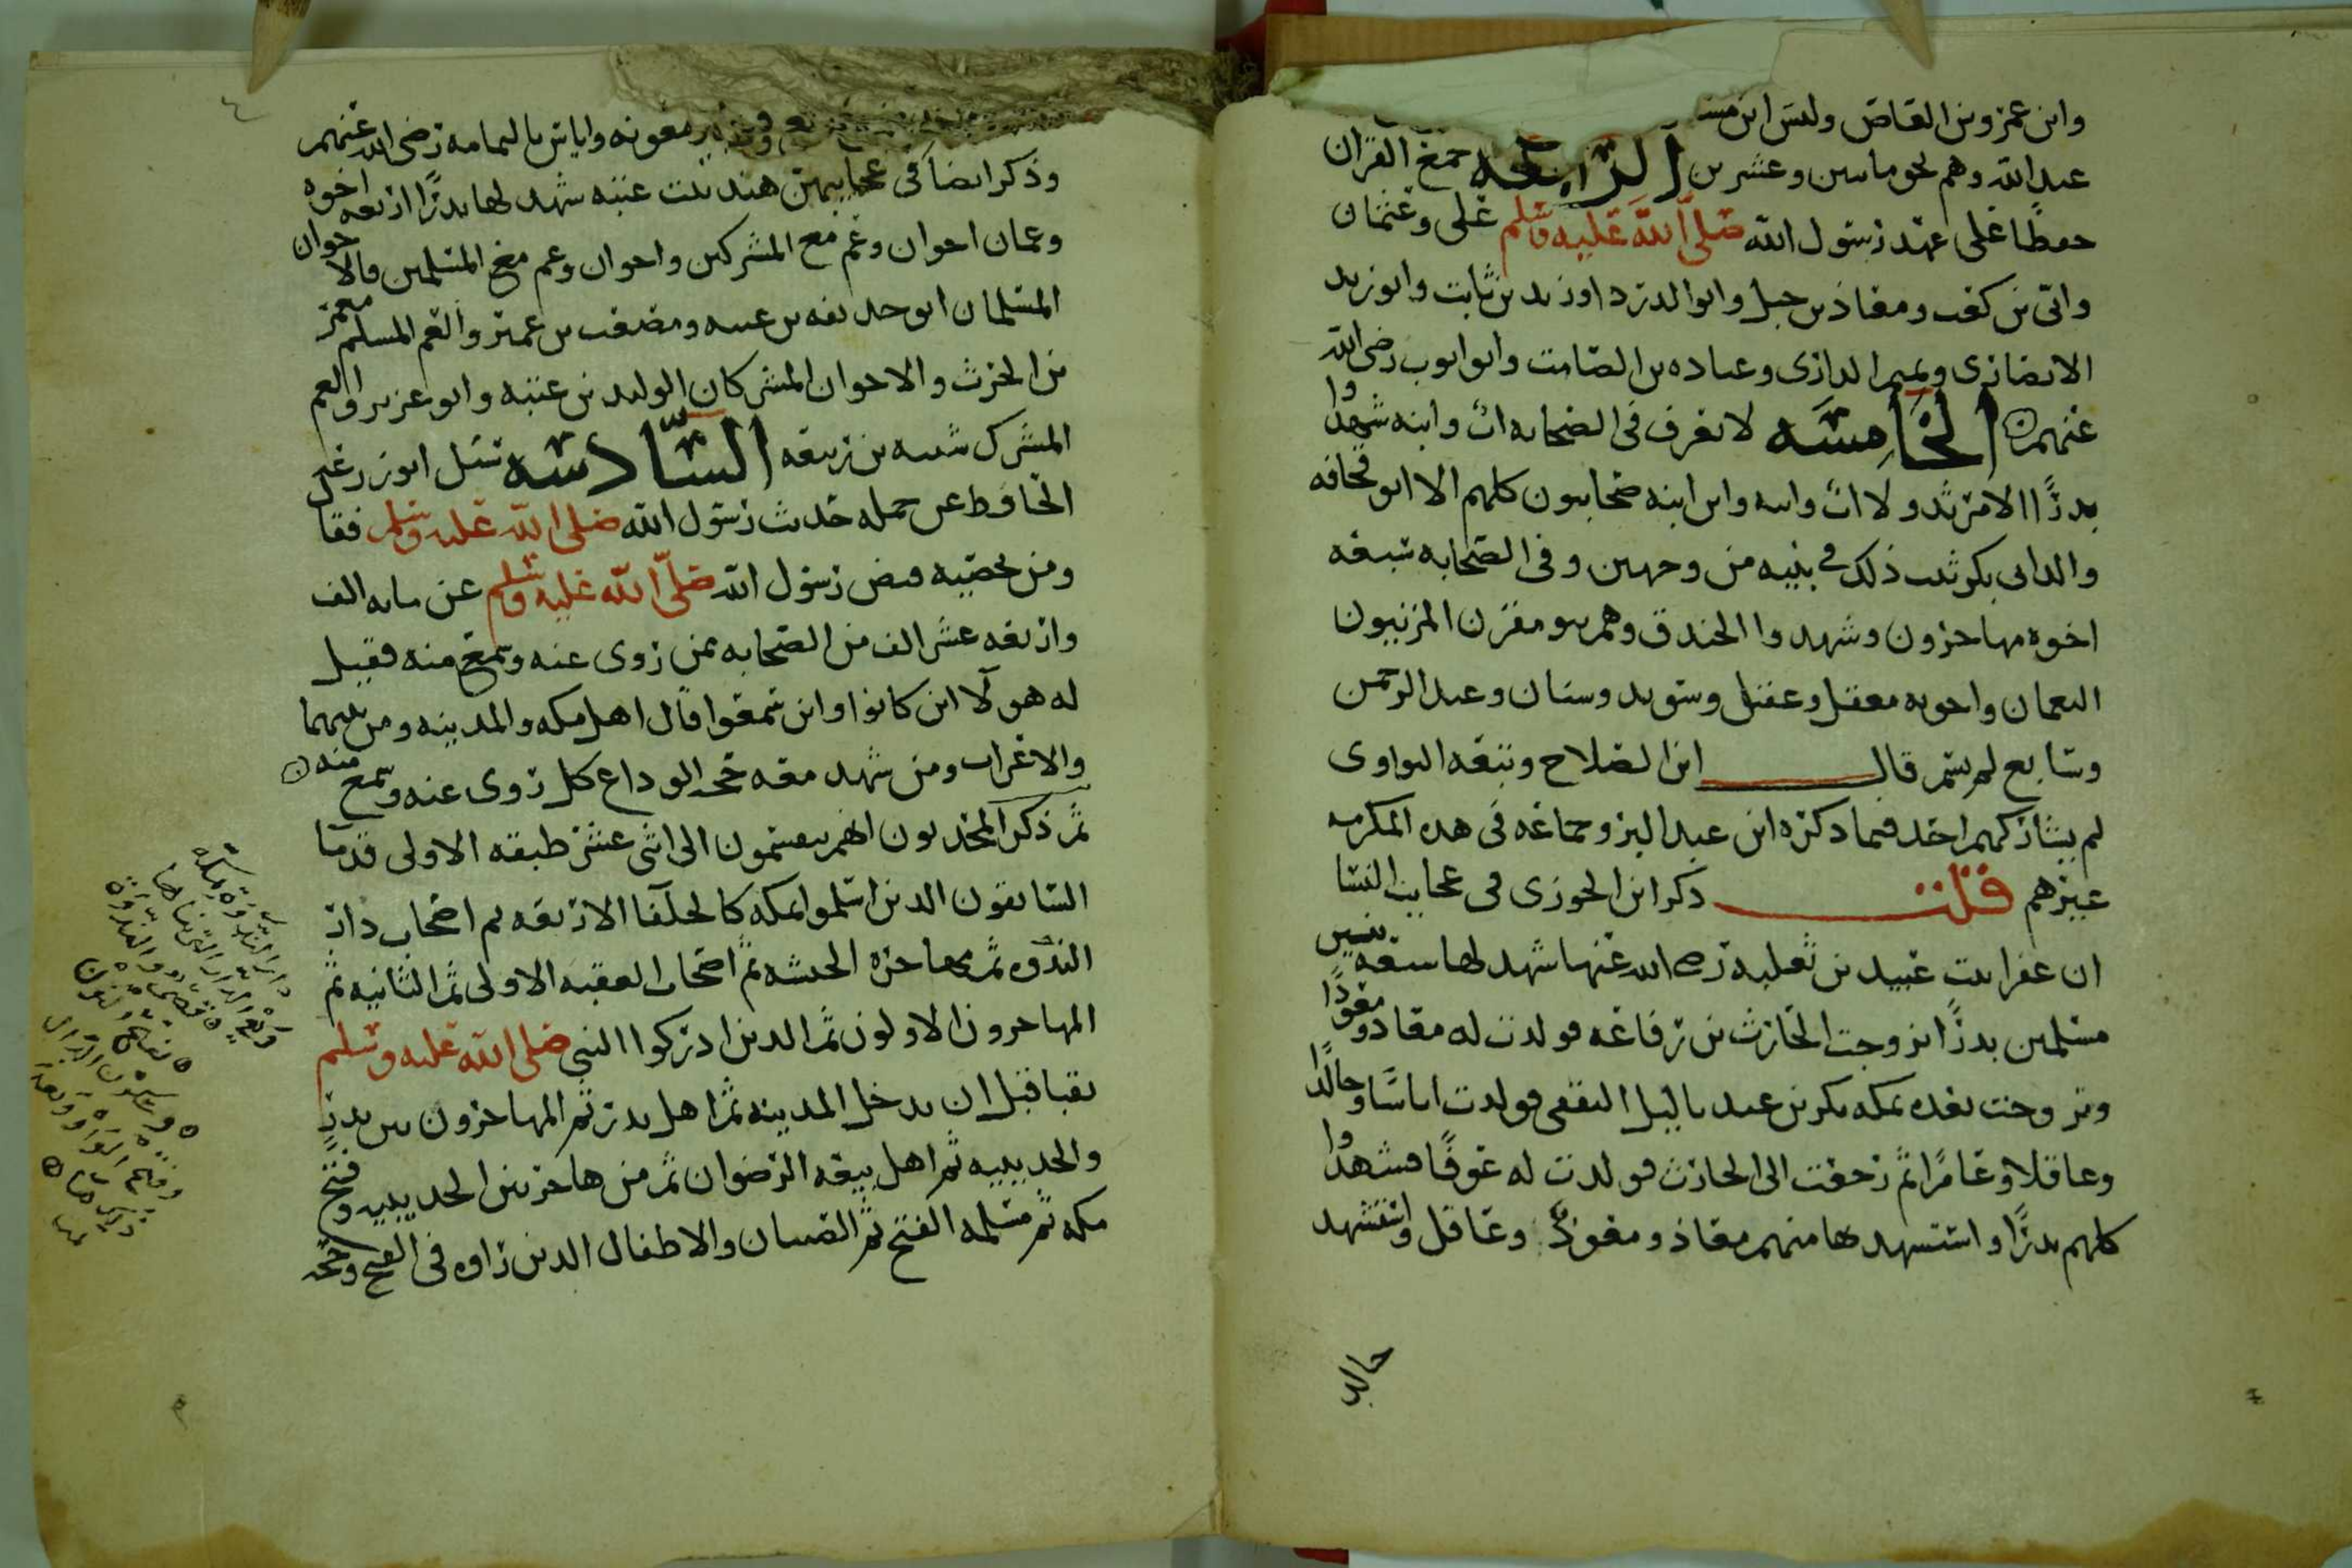 وابن عمرو بن العاص وليس ابن مسـ
عبد الله وهم نحو مايتين وعشرين الرابعه جمع القران
حفظا على عهد رسول الله صلى الله عليه وسلم على وعثمان
وابى بن كعب ومعاذ بن جبل وابو الدردا وزيد بن ثابت وابو زيد
الانصارى وتميم الدارى وعباده بن الصامت وابو ايوب رضى الله
عنهم الخامسه لا يعرف فى الصحابه اب وابنه شهدوا
بدرًا الا مرثد ولا اب وابنه وابن ابنه صحابيون كلهم الا ابو قحافه
والد ابى بكر ثبت ذلك فى بنيه من وجهين وفى الصحابه سبعه
اخوه مهاجرون وشهدوا الخندق وهم بنو مقرن المزنيون
النعمان واخوته معقل وعقيل وسويد وسنان وعبد الرحمن
وسابع لم يسم قال ابن الصلاح وتبعه النواوى
لم يشاركهم احد فيما ذكره ابن عبد البر وجماعه فى هذه المكرمه
غيرهم قلت ذكر ابن الجوزى فى عجايب النسا
ان عفرا بنت عبيد بن ثعلبه رضى الله عنها شهد لها سبعه بنين
مسلمين بدرًا تزوجت الحارث بن رفاعه فولدت له معاذ ومعوذًا
وتزوجت بعده بمكه بكر بن عبد ياليل الثقفى فولدت اياسًا وخالدًا
وعاقلا وعامرًا ثم رجعت الى الحارث فولدت له عوفًا فشهدوا
كلهم بدرًا واستشهد بها منهم معاذ ومعوذ وعاقل واستشهد
خالد
بير معونه واياس باليمامه رضى الله عنهم
وذكر ايضا فى عجايبهن هند بنت عتبه شهد لها بدرًا اربعه اخوه
وعمان اخوان وعم مع المشركين واخوان وعم مع المسلمين فالاخوان
المسلمان ابو حذيفه بن عتبه ومصعب بن عمير والعم المسلم معمر
بن الحرث والاخوان المشركان الوليد بن عتبه وابو عزير والعم
المشرك شيبه بن ربيعه السادسه سئل ابو زرعه
الحافظ عن جمله حديث رسول الله صلى الله عليه وسلم فقال
ومن يحصيه قبض رسول الله صلى الله عليه وسلم عن مايه الف
واربعه عشر الف من الصحابه ممن روى عنه وسمع منه فقيل
له هولآ اين كانوا واين سمعوا قال اهل مكه والمدينه ومن بينهما
والاعراب ومن شهد معه حجه الوداع كل روى عنه وسمع منه
ثم ذكر المحدثون انهم ينقسمون الى اثنى عشر طبقه الاولى قدما
السابقون الذين اسلموا بمكه كالخلفا الاربعه ثم اصحاب دار
الندوه ثم مهاجره الحبشه ثم اصحاب العقبه الاولى ثم الثانيه ثم
المهاجرون الاولون ثم الذين ادركوا النبى صلى الله عليه وسلم
بقبا قبل ان يدخل المدينه ثم اهل بدر ثم المهاجرون بين بدر
والحديبيه ثم اهل بيعه الرضوان ثم من هاجر بين الحديبيه وفتح
مكه ثم مسلمه الفتح ثم الصبيان والاطفال الذين راوه فى الفتح وحجه
دار الندوة بمكه
التى بناها
قصى والندوة
بفتح النون
وسكون الدال
وفتح الواو وبعدها